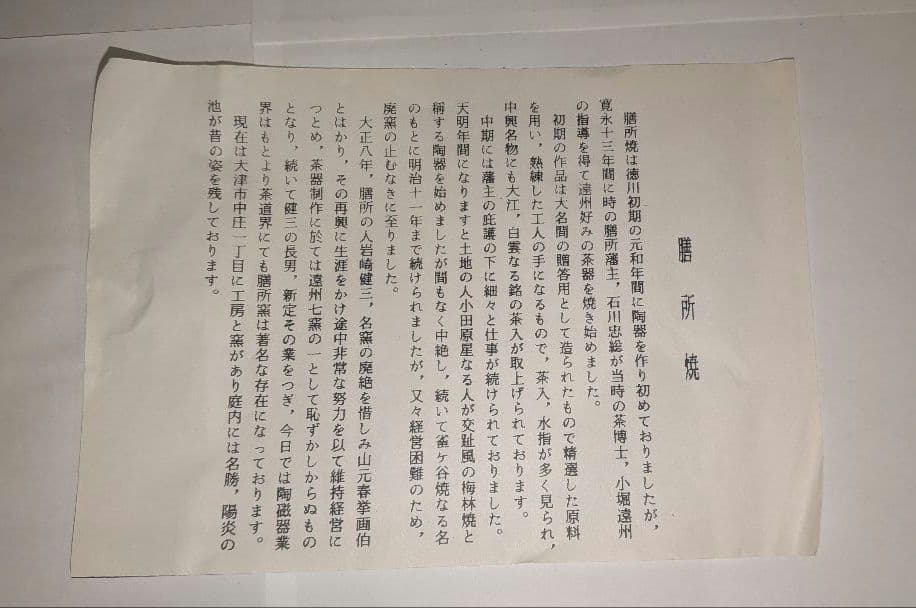 膳所焼
膳所焼は徳川初期の元和年間に陶器を作り初めておりましたが，
寛永十三年間に時の膳所藩主，石川忠総が当時の茶博士，小堀遠州
の指導を得て遠州好みの茶器を焼き始めました。
初期の作品は大名間の贈答用として造られたもので精選した原料
を用い，熟練した工人の手になるもので，茶入，水指が多く見られ，
中興名物にも大江，白雲なる銘の茶入が取上げられております。
中期には藩主の庇護の下に細々と仕事が続けられておりました。
天明年間になりますと土地の人小田原星なる人が交趾風の梅林焼と
称する陶器を始めましたが間もなく中絶し，続いて雀ヶ谷焼なる名
のもとに明治十一年まで続けられましたが，又々経営困難のため，
廃窯の止むなきに至りました。
大正八年，膳所の人岩崎健三，名窯の廃絶を惜しみ山元春挙画伯
とはかり，その再興に生涯をかけ途中非常な努力を以て維持経営に
つとめ，茶器制作に於ては遠州七窯の一として恥ずかしからぬもの
となり，続いて健三の長男，新定その業をつぎ，今日では陶磁器業
界はもとより茶道界にても膳所窯は著名な存在になっております。
現在は大津市中庄一丁目に工房と窯があり庭内には名勝，陽炎の
池が昔の姿を残しております。